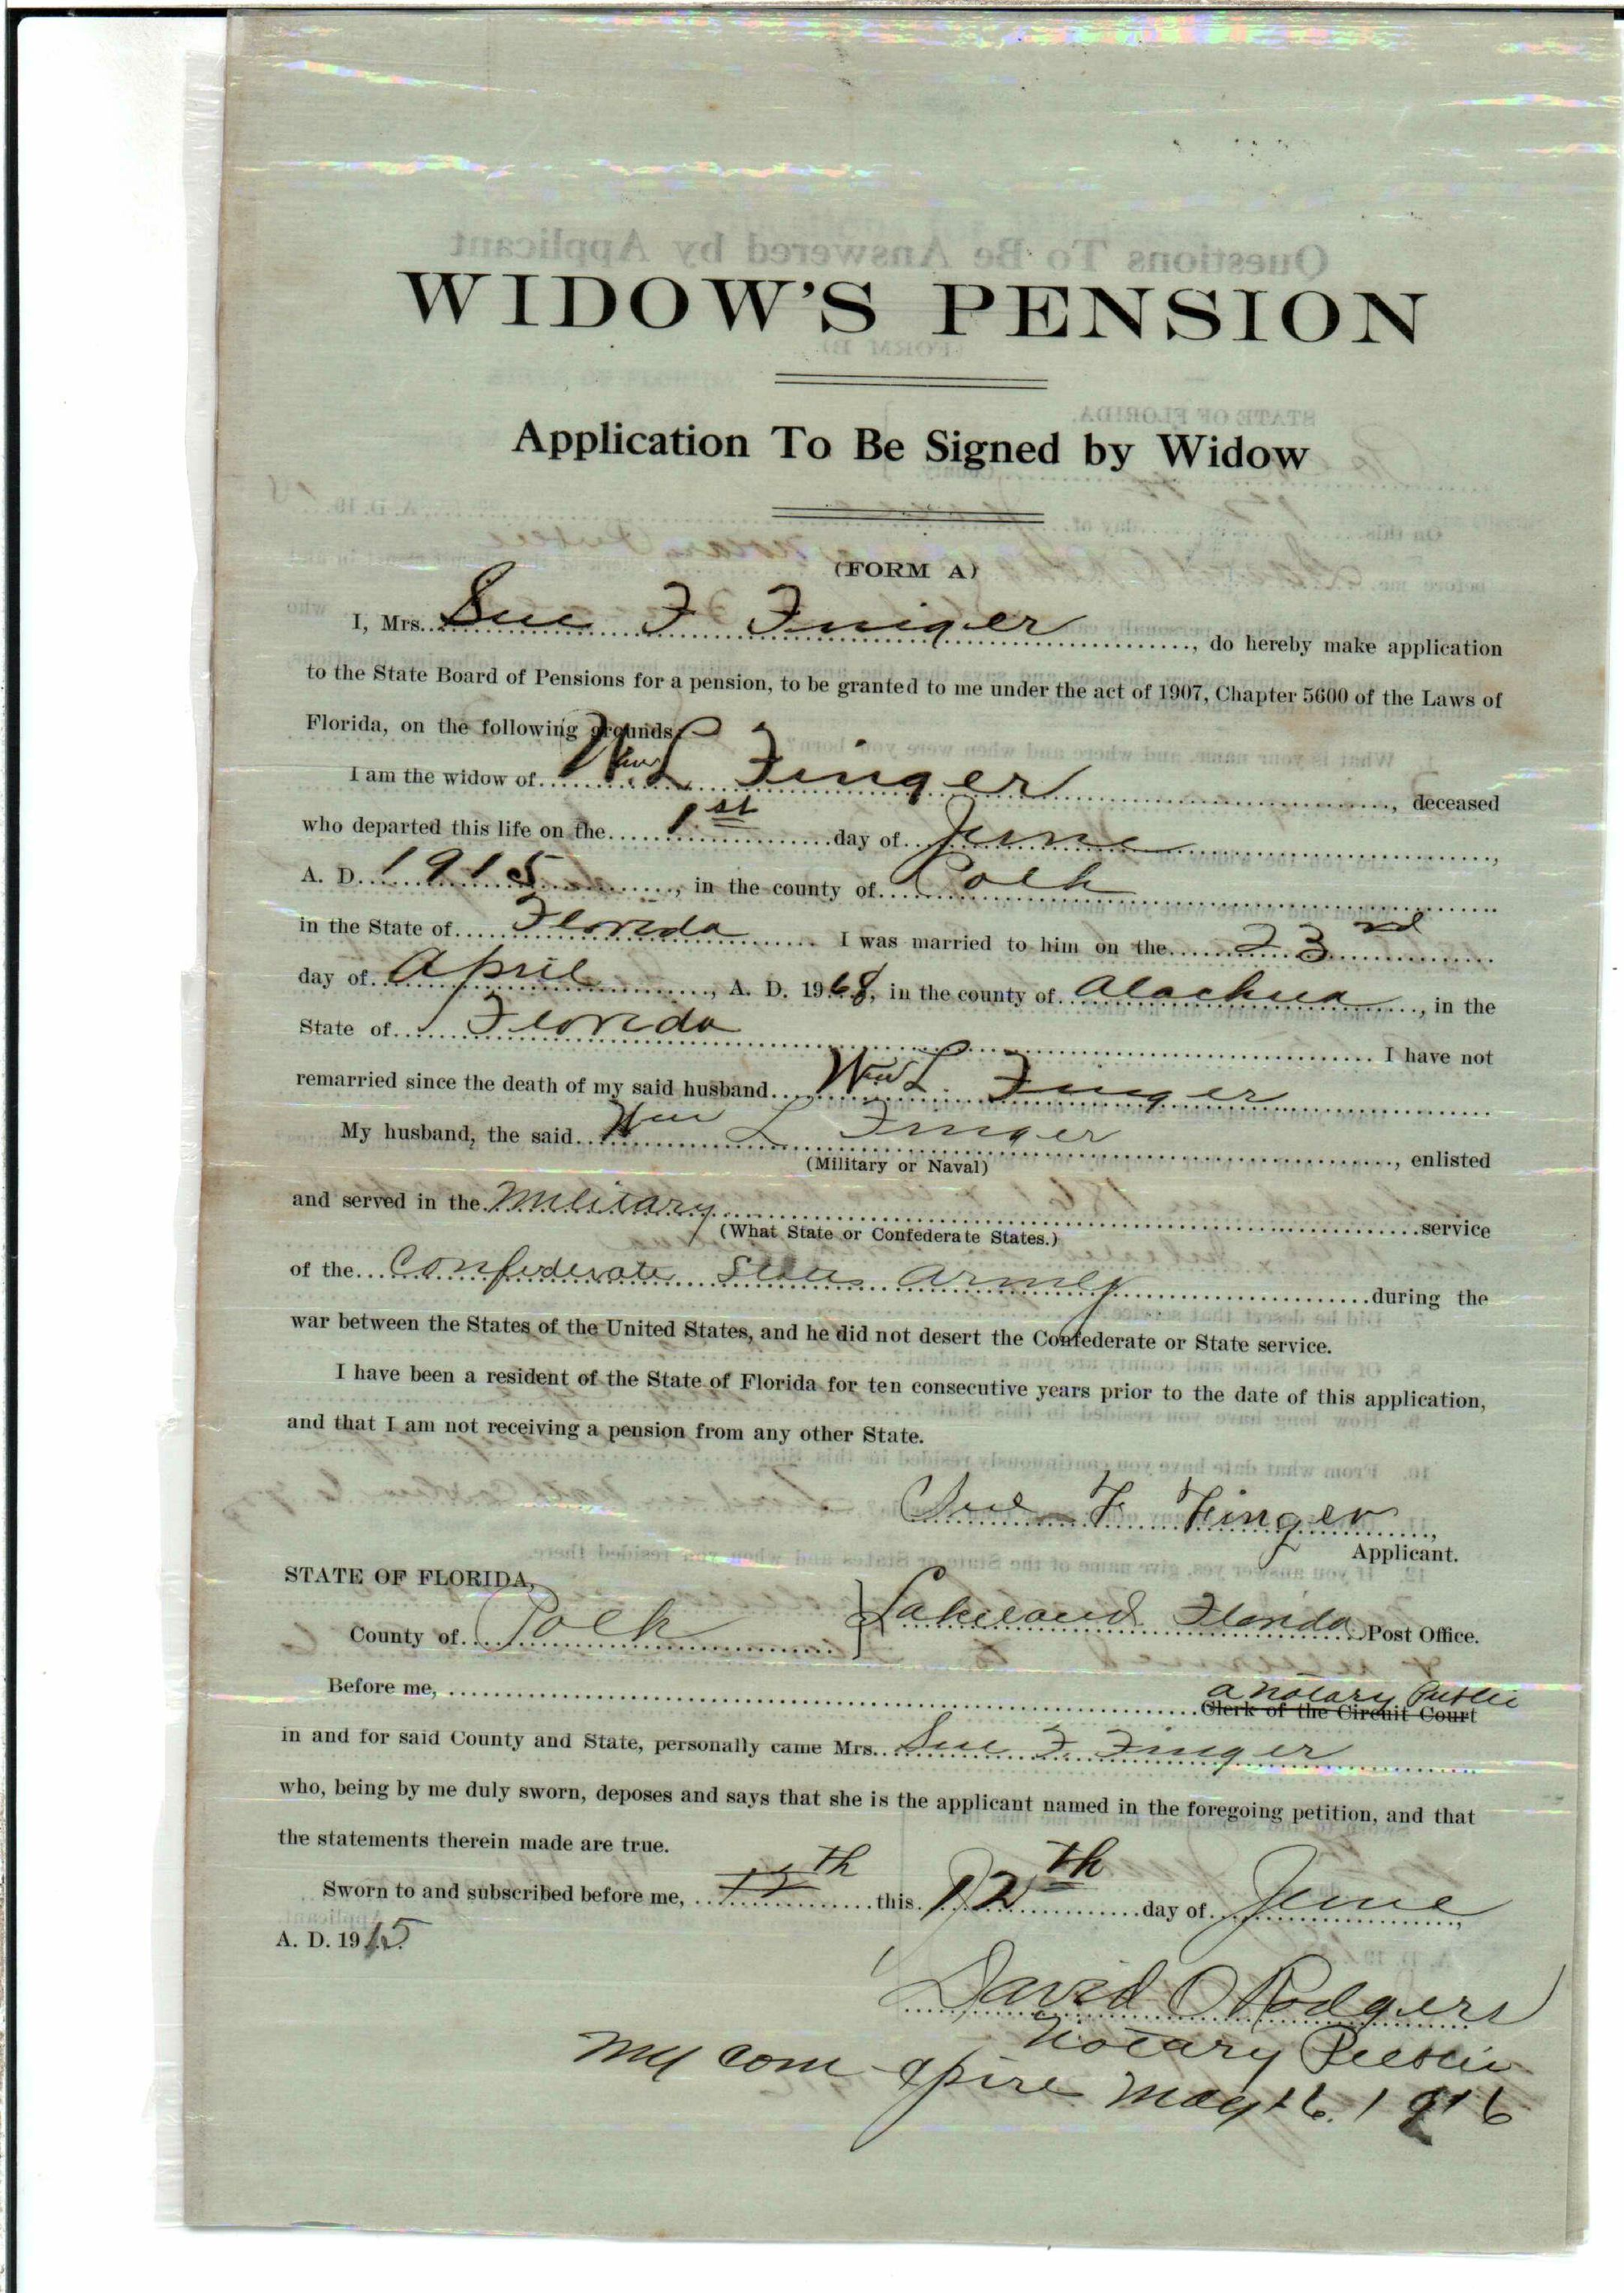 WIDOW'S PENSION
Application To Be Signed by Widow
(FORM A)
I, Mrs. Sue F Finger, do hereby make application
to the State Board of Pensions for a pension, to be granted to me under the act of 1907, Chapter 5600 of the Laws of
Florida, on the following grounds:
I am the widow of Wm L Finger, deceased
who departed this life on the 1st day of June,
A. D. 1915, in the county of Polk
in the State of Florida I was married to him on the 23rd
day of April, A. D. 1968, in the county of Alachua, in the
State of Florida I have not
remarried since the death of my said husband Wm L. Finger
My husband, the said Wm L Finger, enlisted
(Military or Naval)
and served in the Military service
(What State or Confederate States.)
of the Confederate States Army during the
war between the States of the United States, and he did not desert the Confederate or State service.
I have been a resident of the State of Florida for ten consecutive years prior to the date of this application,
and that I am not receiving a pension from any other State.
Sue F Finger,
Applicant.
STATE OF FLORIDA,
County of Polk } Lakeland Florida Post Office.
Before me, a Notary Public
Clerk of the Circuit Court
in and for said County and State, personally came Mrs. Sue F. Finger
who, being by me duly sworn, deposes and says that she is the applicant named in the foregoing petition, and that
the statements therein made are true.
Sworn to and subscribed before me, 12th this 12th day of June,
A. D. 1915
David O Rodgers
Notary Public
My com expire May 16. 1916